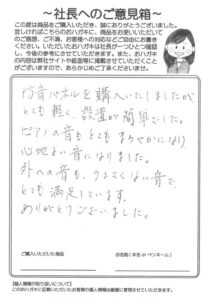 ～社長へのご意見箱～
この度は商品をご購入いただき、誠にありがとうございます。
宜しければこちらのおハガキに、商品をお使いいただいて
のご感想、ご不満、お客様への対応などご自由にお書き
ください。いただいたおハガキは社長が一つひとつ確認
し、今後の参考にさせていただきます。また、おハガキ
の内容は弊社サイトや紙面等に掲載させていただくこと
がございますので、あらかじめご了承くださいませ。
防音パネルを購入いたしましたが
とても軽く設置が簡単でした。
ピアノの音もとてもまろやかになり
心地よい音になりました。
外への音も、うるさくない音で、
とても満足しています。
ありがとうございました。
ご購入いただいた商品
お名前（本名 or ペンネーム）
【個人情報の取り扱いについて】
このおハガキに記載いただいたお客様の個人情報は厳重に管理させていただきます。